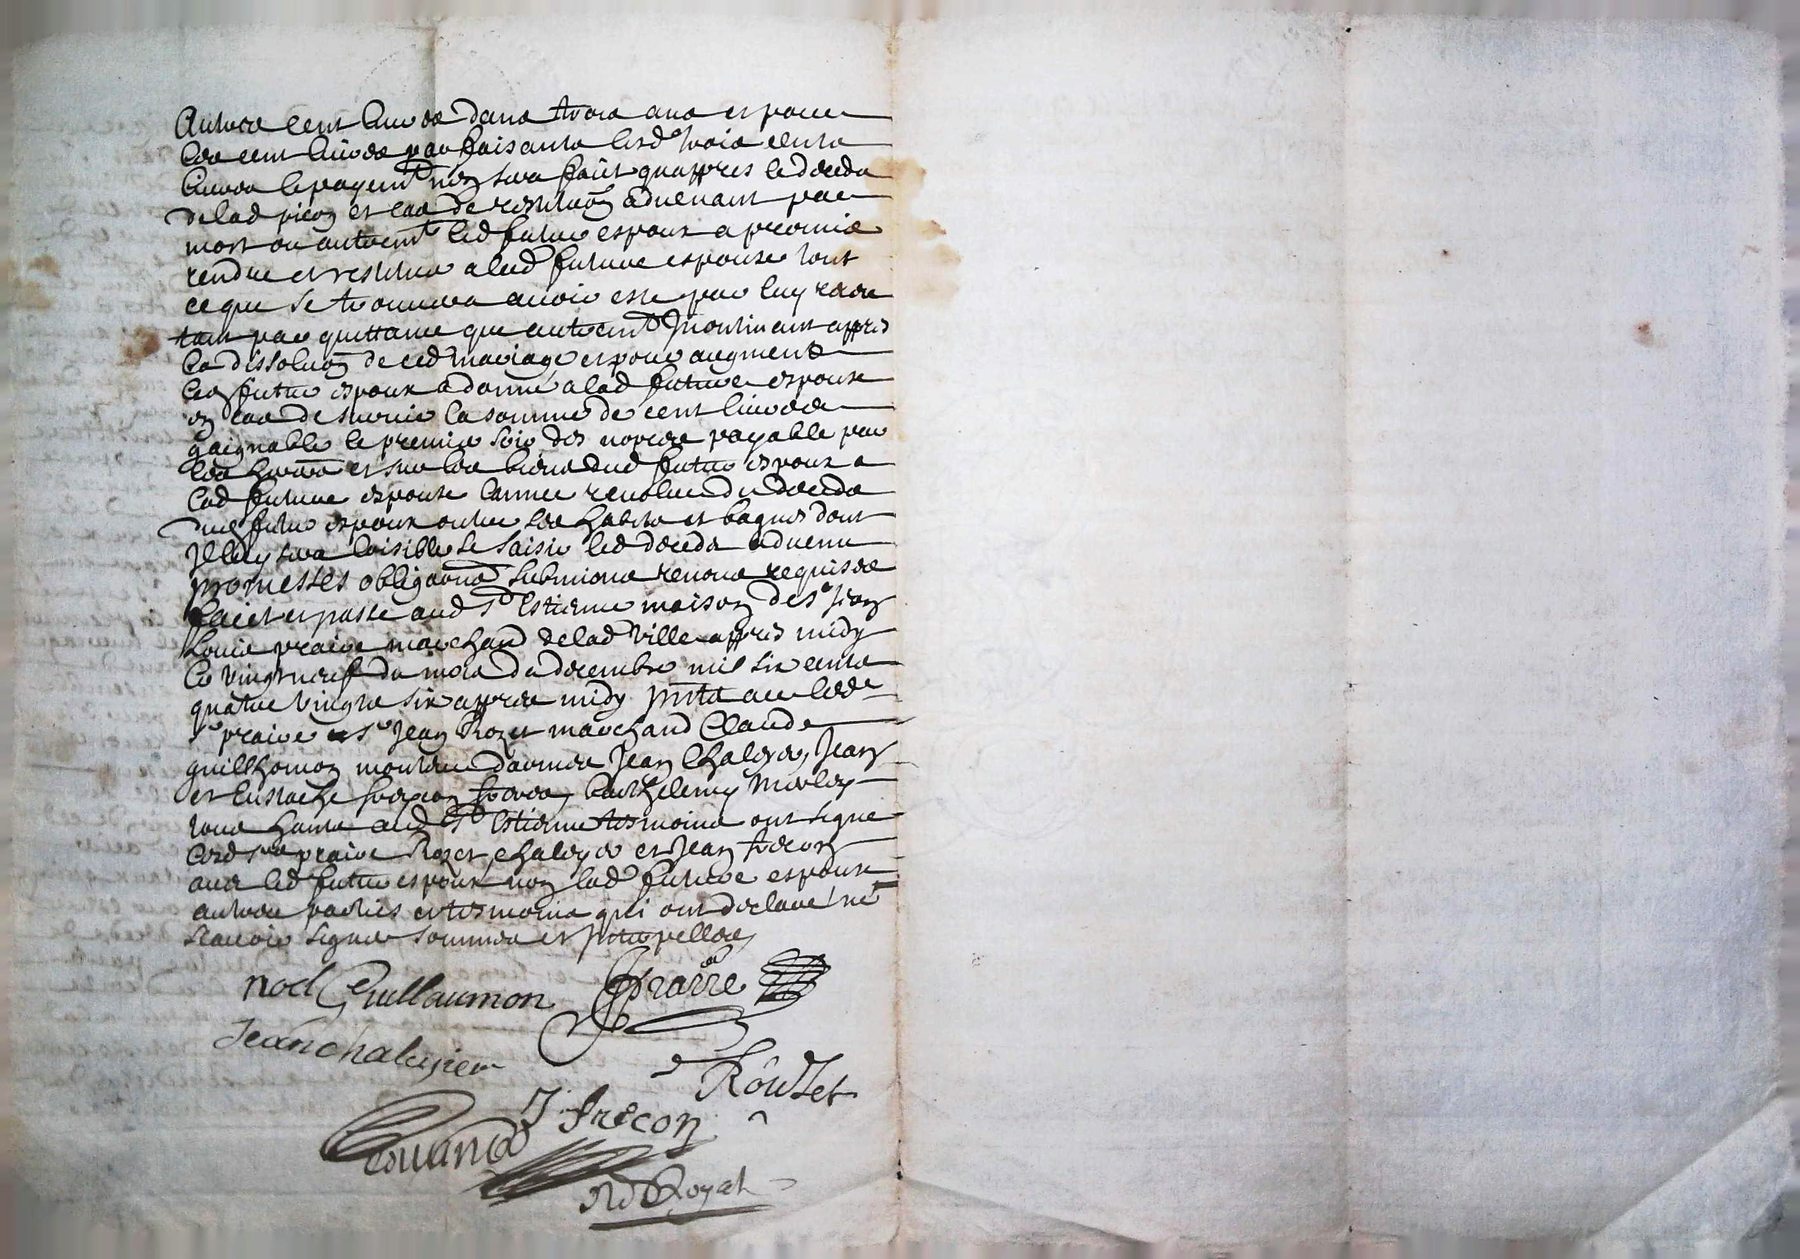 Autres cent livres dans trois ans et pour
les cent livres parfaisants lesd trois cents
livres le payemt nen sera faict quappres le decedz
delad picon et cas de restituon advenant par
mort ou autremt led futur espoux a promis
rendre et restituer a lad future espouse tout
ce que se trouvera avoir esté par luy receu
tant par quittance que autremt Moulinant appres
la dissoluon de ced mariage et pour augment
led futur espoux a donné a lad future espouse
en cas de survie la somme de cent livres
gaignable le premier soir des nopces payable par
les hoirs et sur les biens dud futur espoux a
lad future espouse lannee revolue du decedz
dud futur espoux outre les habits et bagues dont
Il luy sera loisible se saisir led decedz advenu
promesses obligaons submions renons requises
faict et passé aud St Estienne maison de Sr Jean
Louis praire marchand de lad ville appres midy
Le vingt neuf du mois de decembre mil six cents
quatre vingts six appres midy pnts avec led
Sr praire Sr Jean Rozet marchand Claude
guilhomon monteur darmes Jean Chaleyer, Jean
et Eustache frecon freres, barthelemy Merley
tous habts aud St Estienne tesmoins ont signé
lesd srs praire Rozet, chaleyer et Jean frecon
avec led futur espoux non lad future espouse
autres parties et tesmoins qui ont declaré ne
scavoir signer sommes et interpelles
noel Guillaumon Praire
Jean chaleyer
Rouzet
J. frecon
Rd Royal